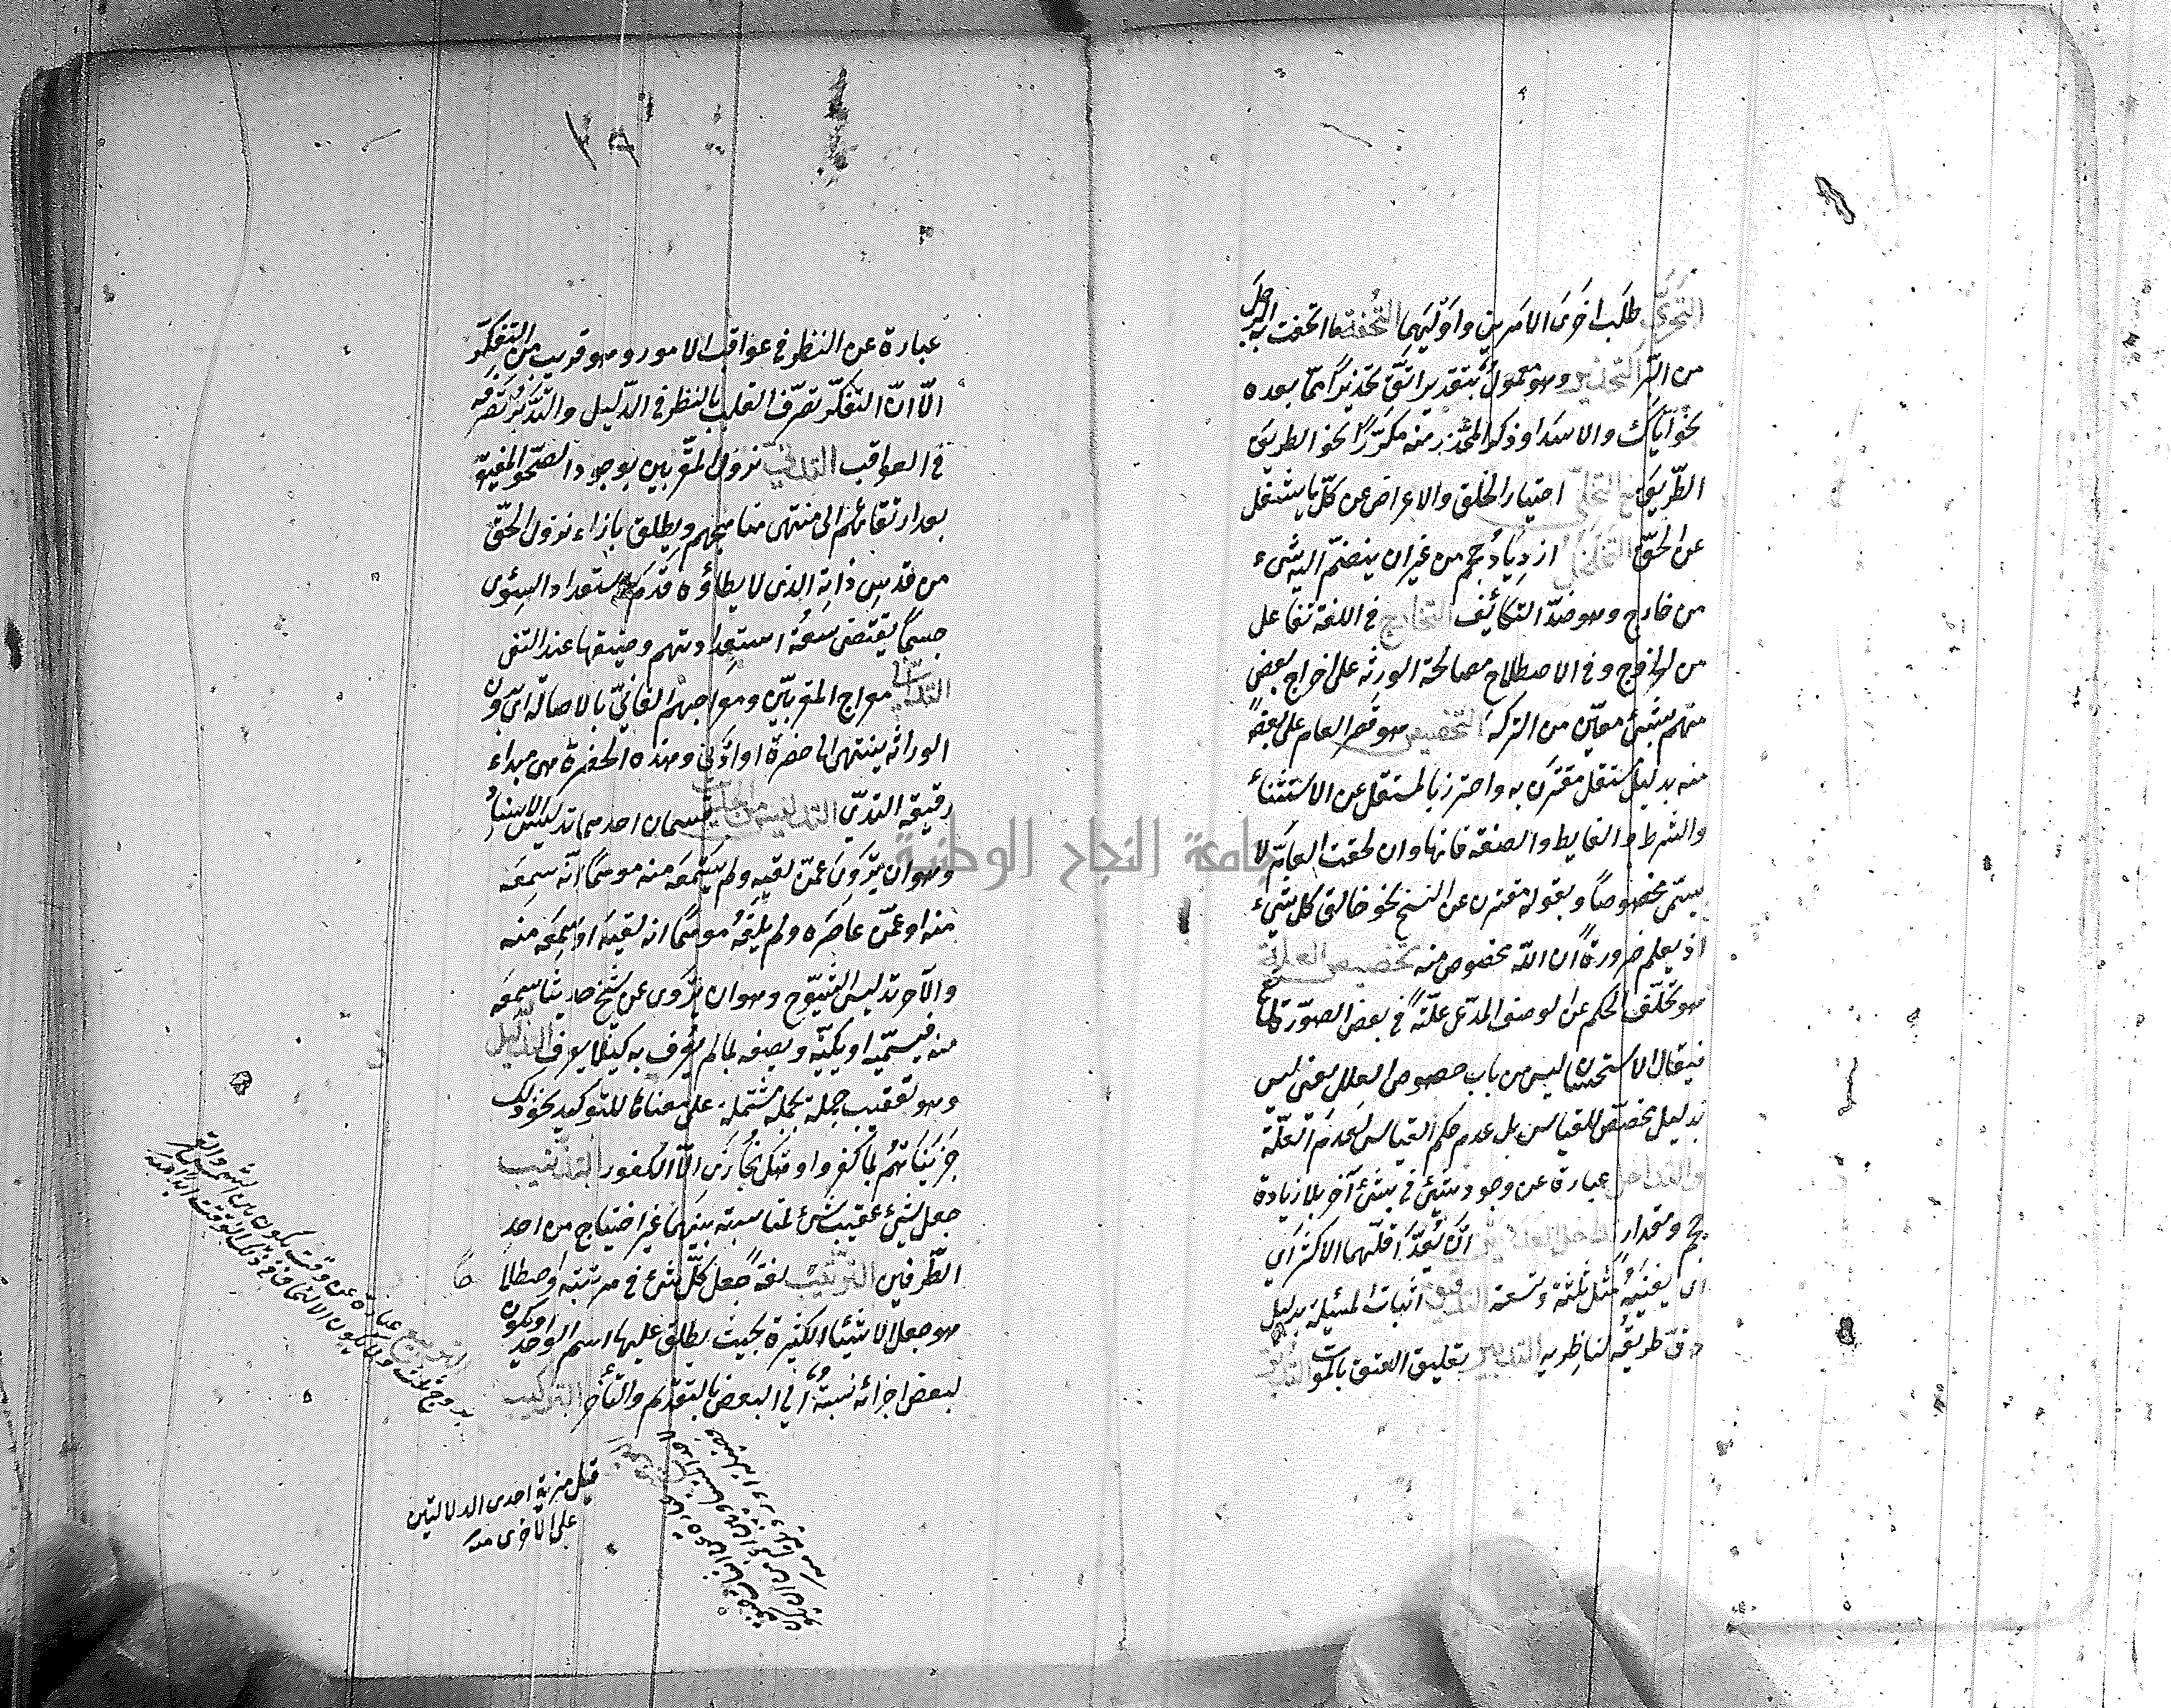 التحرّى طلب احرى الامرين واوليهما التحفة ما اتحفت به الرجل
من البرّ التحذير وهو معمول بتقدير اتّق تحذيرًا ممّا بعده
نحو اياك والاسد او ذكر المحذر منه مكرّرًا نحو الطريق
الطّريق التخلّى اختيار الخلق والاعراض عن كلّ ما يشغل
عن الحقّ التخلخل ازدياد حجم من غير ان ينضمّ اليه شىء
من خارج وهو ضدّ التكاثف التخارج فى اللغة تفاعل
من الخروج وفى الاصطلاح مصالحة الورثة على اخراج بعض
منهم بشئ معيّن من التركة التخصيص هو قصر العام على بعض
منه بدليل مستقل مقترن به واحترز بالمستقل عن الاستثناء
والشرط والغاية والصفة فانها وان لحقت العام لا
يسمّى مخصوصًا وبقوله مقترن عن النسخ نحو خالق كل شىء
اذ يعلم ضرورةً ان اللّه مخصوص منه تخصيص العلة
هو تخلّف الحكم عن الوصف المدّعى علّته فى بعض الصوّر لمانع
فيقال الاستحسان ليس من باب خصوص العلل يعنى ليس
بدليل مخصّص للقياس بل عدم حكم القياس لعدم العلّة
والتداخل عبارة عن وجود شئ فى شئ آخر بلا زيادة
حجم ومقدار تداخل العددين ان يعدّ اقلّهما الاكثر اى
اى يفنيه مثل ثلثة وتسعة التدقيق اثبات المسئلة بدليل
دقّ طريقه لناظريه التدبير تعليق العتق بالموت التدبّر
عبارة عن النظر فى عواقب الامور وهو قريب من التفكّر
الّا انّ التفكّر تصرّف القلب بالنظر فى الدّليل والتدبّر تصرّفه
فى العواقب التدلّى نزول المقربين بوجود الصّحو المفيق
بعد ارتقائهم الى منتهى مناهجهم ويطلق بازاء نزول الحّق
من قدس ذاته الذى لا يطاؤه قدم استعداد السوى
حسبما يقتضى سعة استعداداتهم وضيقها عند التدلى
التدانى معراج المقربيّن ومعراجهم الغائىّ بالاصالة اى دون
الوراثة ينتهى الى حضرة او ادنى وهذه الحضرة هى مبداء
رقيقة التدلّى التدليس من الحديث قسمان احدهما تدليس الاسناد
وهو ان يروى عمّن لقيه ولم يسمعه منه موهمًا انّه سمعه
منه او عمّن عاصره ولم يلقه موهمًا انه لقيه او سمعه منه
والآخر تدليس الشيوّخ وهو ان يروى عن شيخ حديثا سمعه
منه فيسمّيه او يكنيّه ويصفه بما لم يعرف به كيلا يعرف التذييل
وهو تعقيب جملة بجملة مشتملة على معناها للتوكيد نحو ذلك
جزيناهم بما كفروا وهل نجازى الّا الكفور التذنيب
جعل شئ عقيب شئ لمناسبة بينهما غير احتياج من احد
الطّرفين الترتيب لغةً جعل كلّ شئ فى مرتبته واصطلاحًا
هو جعل الاشياء الكثيرة بحيث يطلق عليها اسم الوحد ويكون
لبعض اجزائه نسبة الى البعض بالتقدّم والتأخر التركيب
قيل مزية احدى الدلالتين
على الاخرى منه